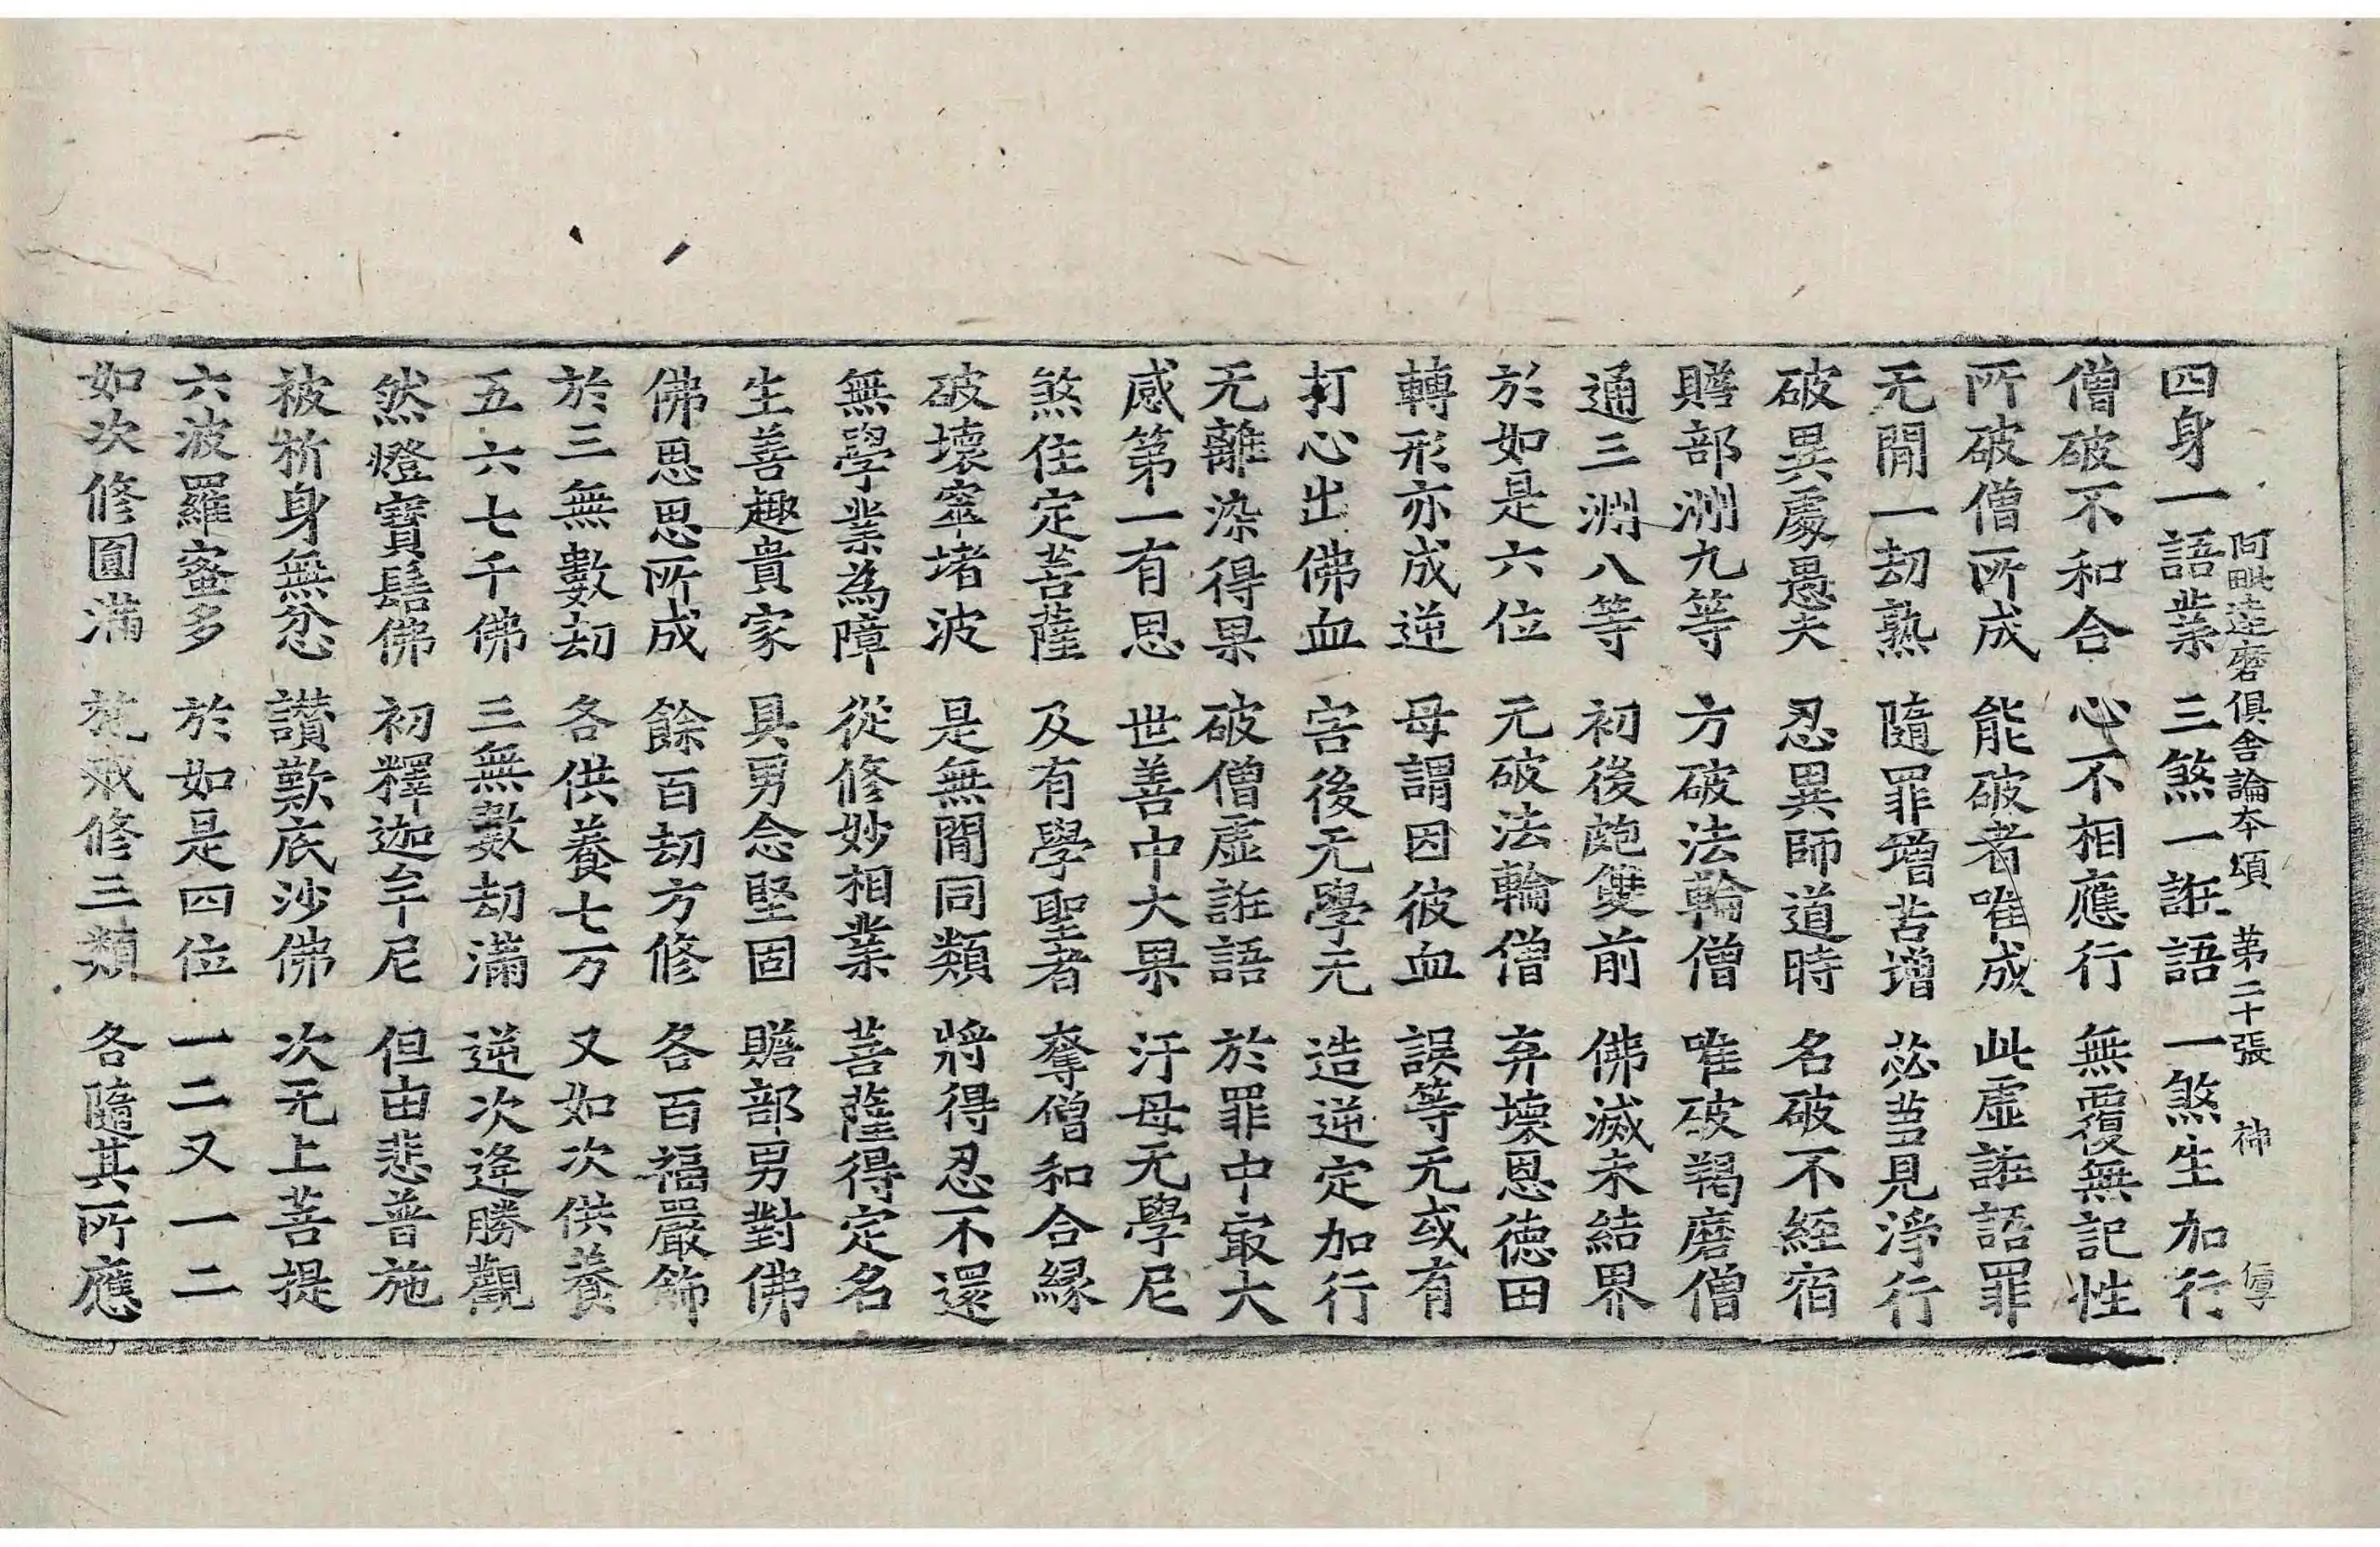 阿毗達磨俱舍論本頌　第二十張　神
四身一語業　三煞一誑語　一煞生加行
僧破不和合　心不相應行　無覆無記性
所破僧所成　能破者唯成　此虛誑語罪
无間一劫熟　隨罪增苦增　苾芻見淨行
破異處愚夫　忍異師道時　名破不經宿
贍部洲九等　方破法輪僧　唯破羯磨僧
通三洲八等　初後皰雙前　佛滅未結界
於如是六位　无破法輪僧　弃壞恩德田
轉形亦成逆　母謂因彼血　誤等无或有
打心出佛血　害後无學无　造逆定加行
无離染得果　破僧虛誑語　於罪中冣大
感第一有思　世善中大果　汙母无學尼
煞住定菩薩　及有學聖者　奪僧和合緣
破壞窣堵波　是無間同類　將得忍不還
無學業為障　從修妙相業　菩薩得定名
生善趣貴家　具男念堅固　贍部男對佛
佛思思所成　餘百劫方修　各百福嚴飾
於三無數劫　各供養七万　又如次供養
五六七千佛　三無數劫滿　逆次逢勝觀
然燈寶髻佛　初釋迦牟尼　但由悲普施
被析身無忿　讚歎底沙佛　次无上菩提
六波羅蜜多　於如是四位　一二又一二
如次修圓滿　施戒修三類　各隨其所應